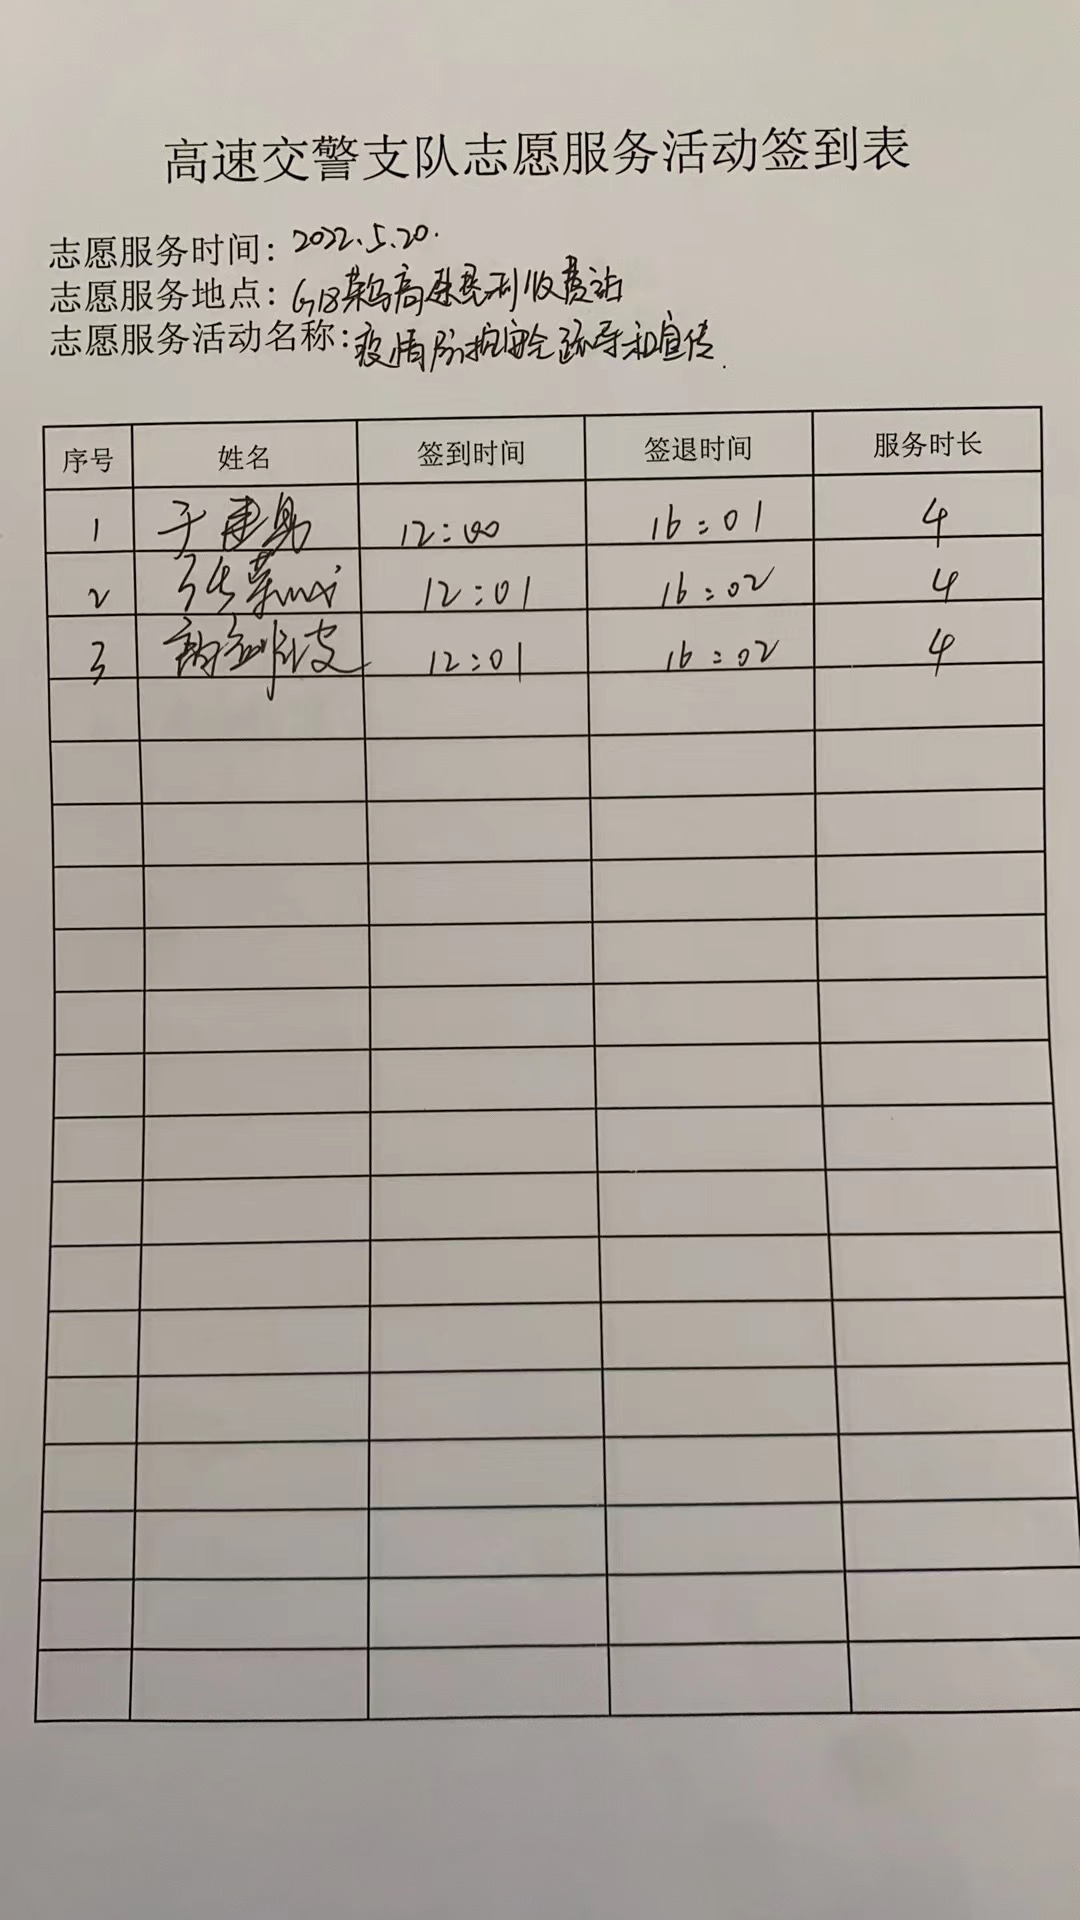 高速交警支队志愿服务活动签到表
志愿服务时间：2022.5.20.
志愿服务地点：G18荣乌高速垦利收费站
志愿服务活动名称：疫情防控安全疏导和宣传.
序号 姓名 签到时间 签退时间 服务时长
1 于建勇 12:00 16:01 4
2 张荣 12:01 16:02 4
3 12:01 16:02 4